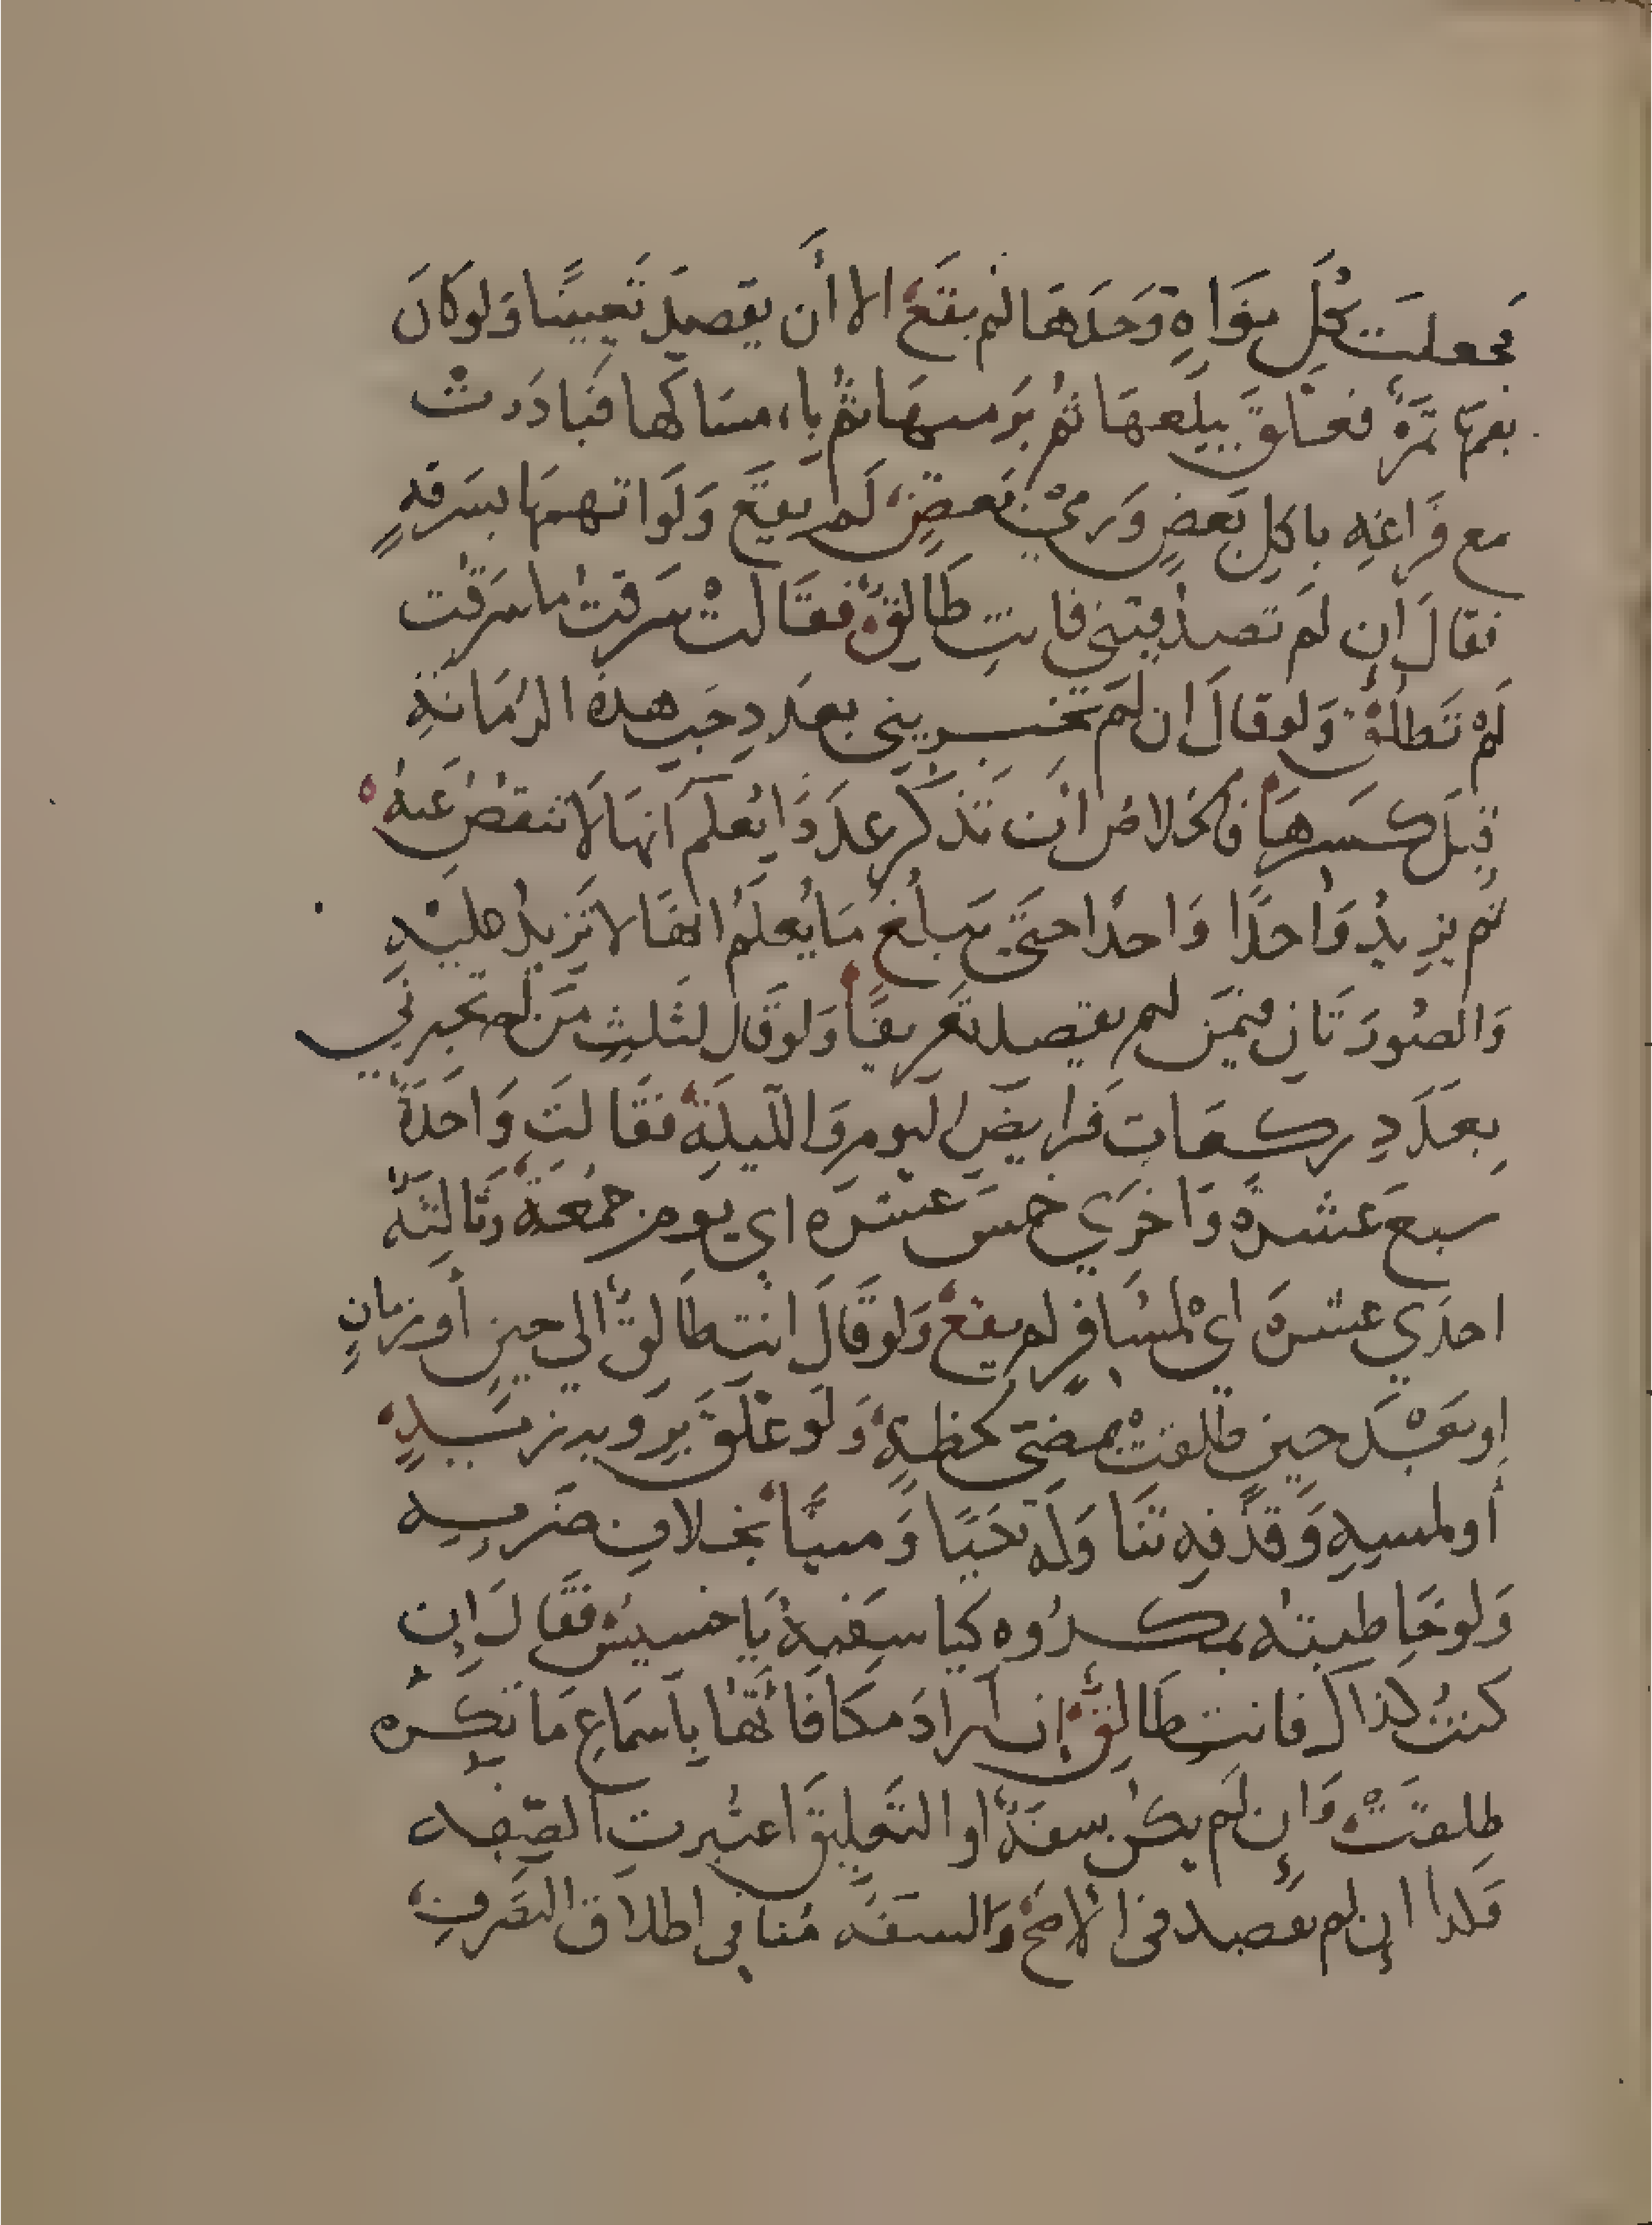 فجعلت كُلَّ نواةٍ وَحدَهَا لم يقَع الا أن يقصدَ تَعيينًا وَلو كانَ
بفمها تمرةٌ فعلّقَ ببلعهَا ثم بَرميهَا ثم بامسَاكها فَبادَرت
مع فَراغهِ باكلِ بَعضٍ وَرمي بَعضٍ لَم يقع وَلَو اتهمهَا بسَرقةٍ
فقالَ ان لم تصدُقيني فانتِ طَالقٌ فقَالت سَرقتُ ما سَرقت
لَم تَطلُق وَلو قالَ ان لم تخبريني بعدَدِ حَبِ هذه الرُمَانةِ
قبلَ كسرهَا فالخلاصُ أن تذكرَ عدَدًا يُعلمُ انهَا لا تنقصُ عَنهُ
ثم يزيدُ وَاحدًا وَاحدًا حتَى تبلغ مَا يُعلمُ انهَا لا تزيدُ عليهِ
وَالصُورَتانِ فيمَن لم يقصد تَعريفًا وَلو قالَ لثَلثٍ مَن لم تخبرني
بِعدَدِ ركعَات فَرايضِ اليومِ وَالليلَة فقَالت وَاحدَةٌ
سبعَ عشرةَ وَاخرَي خمسَ عشرَة اي يوم جمُعة وَثالثةٌ
احدَي عشرةَ اي لمُسَافرٍ لم يقع وَلو قَالَ انتِ طَالقٌ الي حينٍ أو زمانٍ
او بَعْدَ حينٍ طلقتْ بمضيّ لحظةٍ وَلَو عَلّقَ برُويه زيدٍ
أو لمسهِ وَقذفهِ تنَاوَلهُ حَيًا وَميتًا بخلافِ ضَربهِ
وَلو خَاطبتهُ بمكرُوهٍ كيا سَفيهُ يَا خسيسُ فقَالَ إن
كنتُ كذاك فانتِ طَالقٌ إن أرادَ مكَافَاتَهَا بِاسمَاعِ مَا تكرَه
طلقتْ وَإن لَم يكن سفهٌ او التَعليقَ اعتُبرتِ الصّفه
وكذا إن لم يقصد في الاصَحِ وَالسفَه مُنافي اطلاقِ التصَرفِ